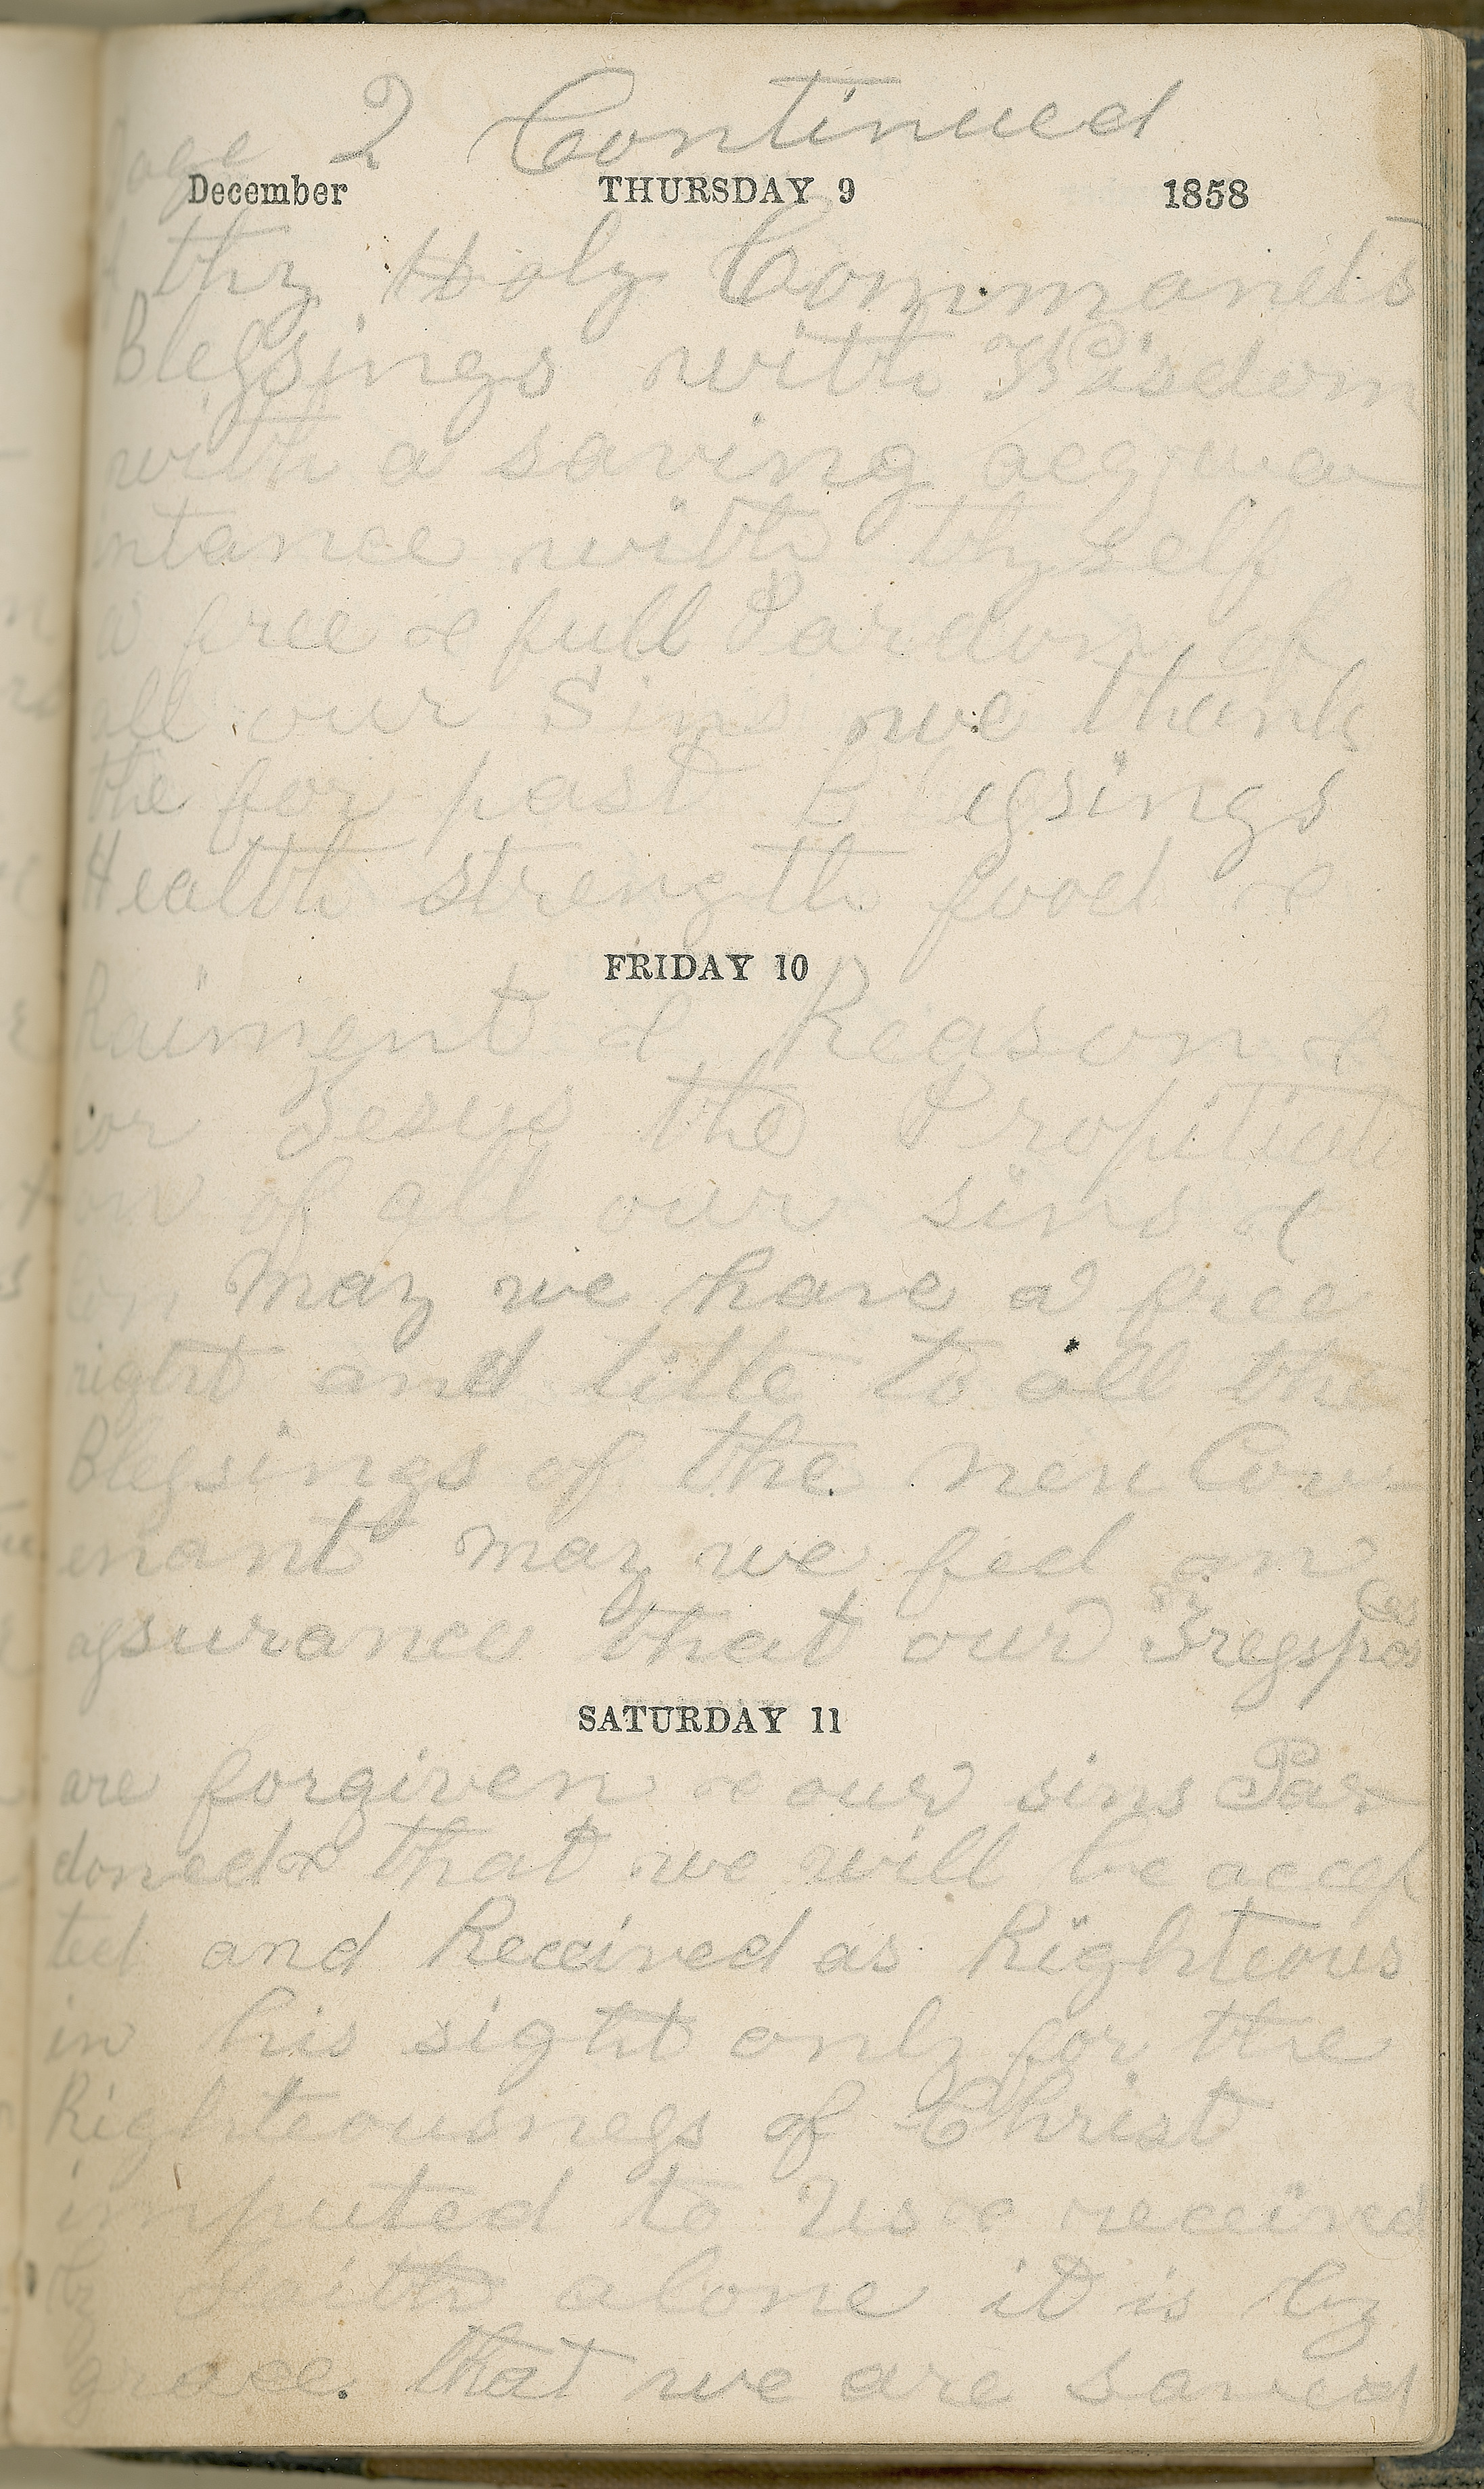 Page 2 Continued
December THURSDAY 9 1858
thy Holy Commands
Blessings with Wisdom
with a saving acqua
intance with thyself
a free & full Pardon of
all our Sins we thank
the for past Blessings
Health strength food &
FRIDAY 10
Raiment & Reason &
for Jesus the Propitiati
on of all our sins &
may we have a free
right and title to all the
Blessings of the new Cov-
enant may we feel an
assurance that our Tresspasses
SATURDAY 11
are forgiven & our sins Par-
doned & that we will be accep
ted and Received as Righteous
in his sight only for the
Righteousness of Christ
imputed to Us & received
by Faith alone it is by
grace. that we are saved